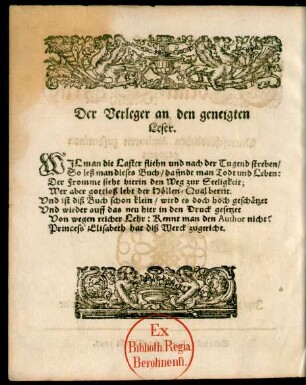 Der Verleger an den geneigten
Leser.
WIl man die Laster fliehn und nach der Tugend streben/
So leß man dieses Buch/ da findt man Todt und Leben:
Der Fromme siehe hierin den Weg zur Seeligkeit;
Wer aber gottloß lebt der Höllen-Qual bereit.
Und ist diß Buch schon klein/ wird es doch hoch geschätzet
Und wieder auff das neu hier in den Druck gesetzet
Von wegen reicher Lehr: Kennt man den Author nicht?
Princess' Elisabeth hat diß Werck zugericht.
Ex
Biblioth. Regia
Berolinensi.